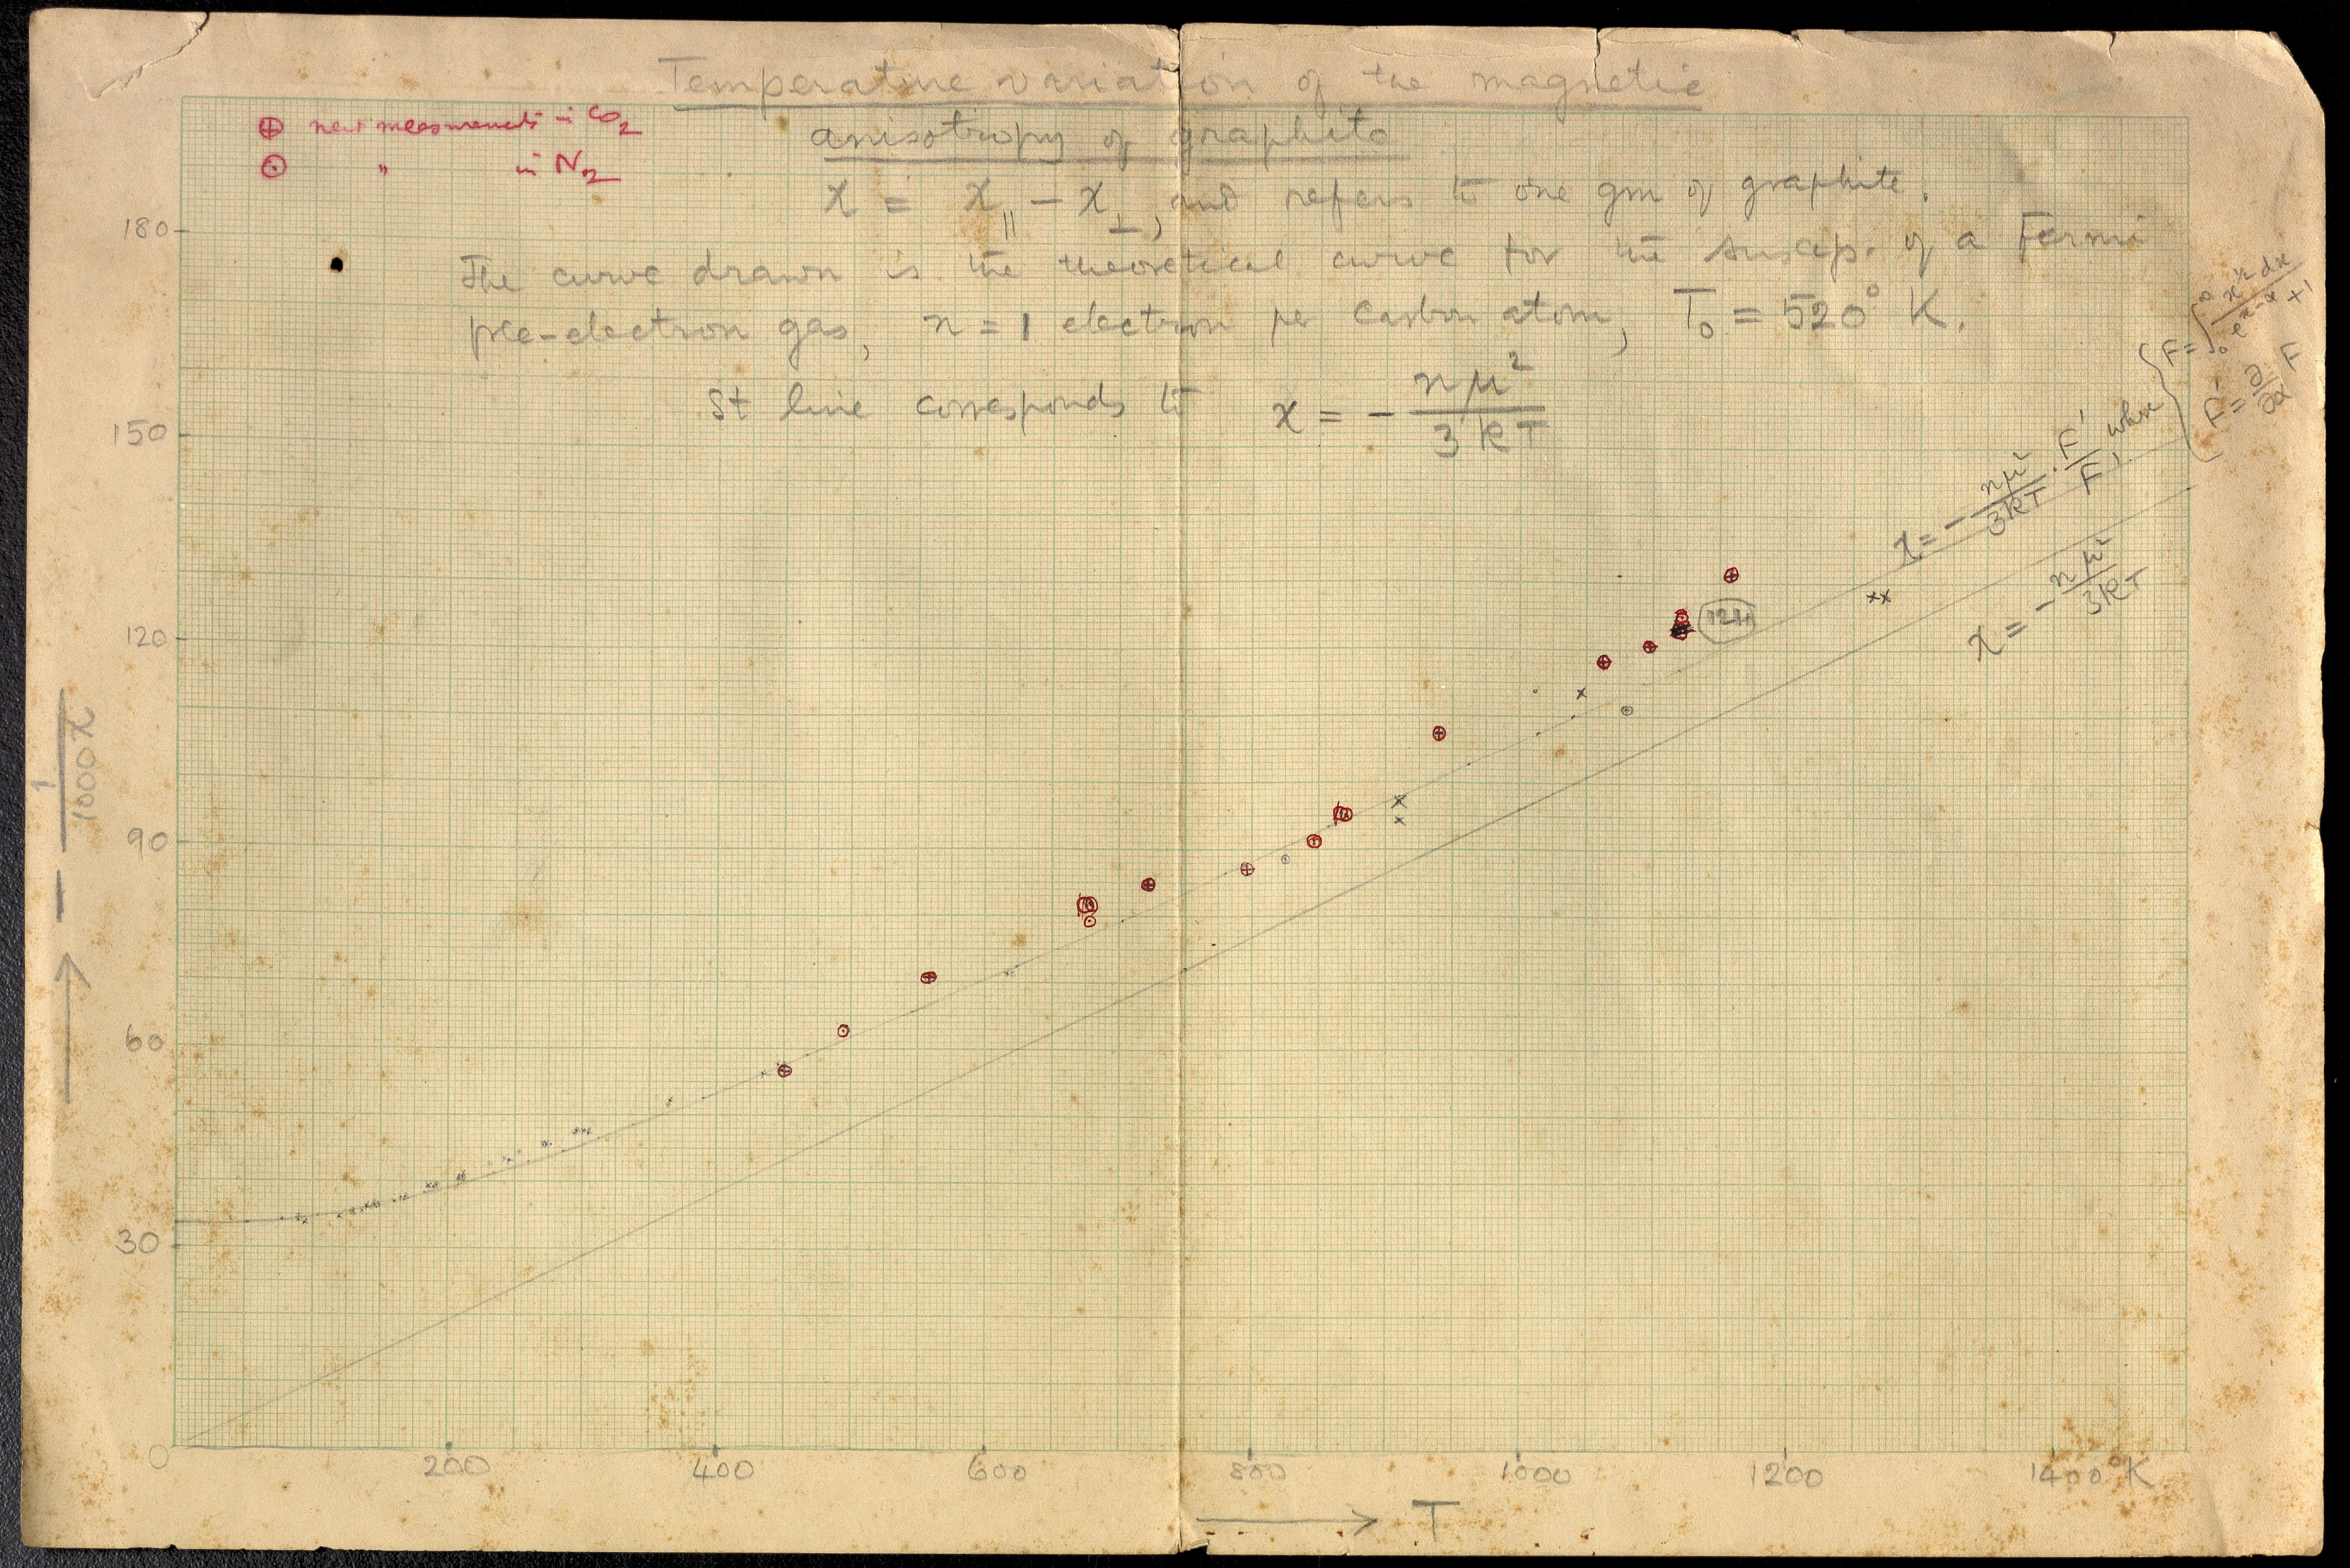 Temperature variation of the magnetic
anisotropy of graphite
⊕ new measurements in CO₂
⊙ " in N₂
χ = χ∥ − χ⊥, and refers to one gm of graphite.
The curve drawn is the theoretical curve for the suscep. of a Fermi
free-electron gas, n = 1 electron per carbon atom, T₀ = 520° K.
St line corresponds to χ = − nμ²/3kT
χ = − nμ²/3kT · F'/F, where
F = ∫₀^∞ xⁿ dx / e^(x−α) + 1
F' = ∂/∂α F
χ = − nμ²/3kT
121
180
150
120
90
60
30
0
200 400 600 800 1000 1200 1400°K.
→ − 1/1000χ
→ T